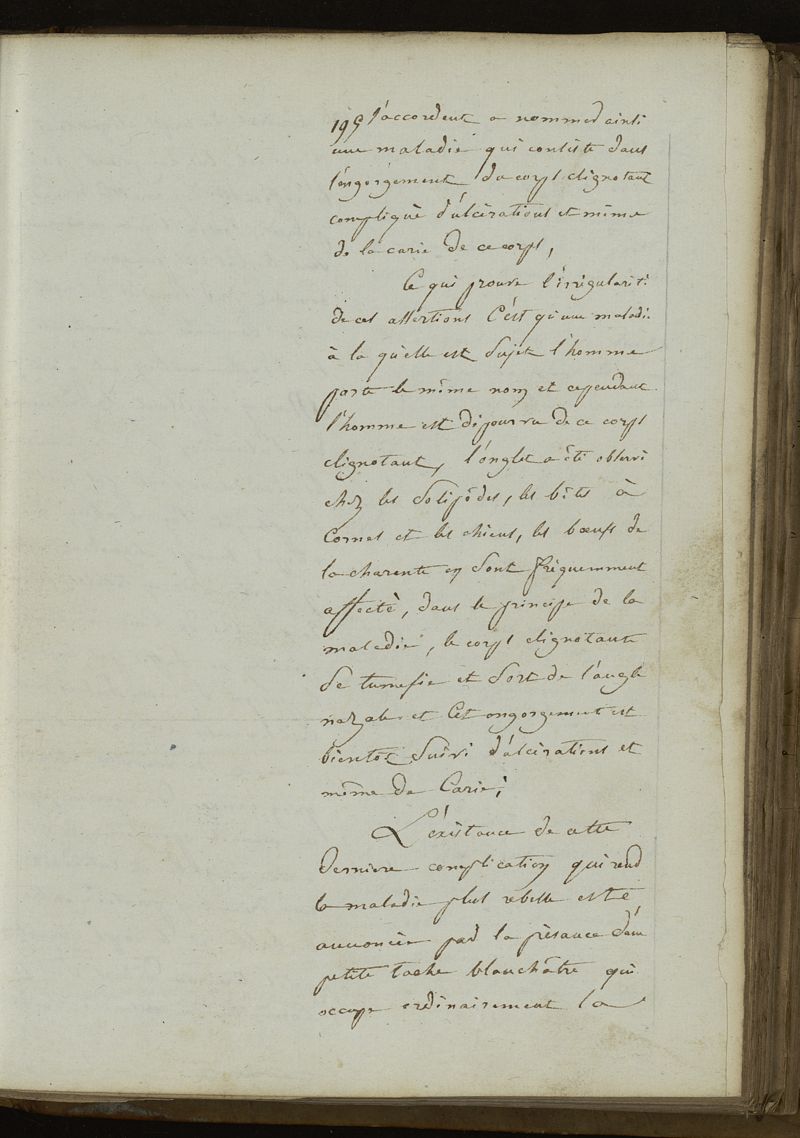 195 s'accordent a nommer ainsi
une maladie qui consiste dans
l'engorgement du corps clignotant
compliqué d'ulcérations et même
de la carie de ce corps,
Ce qui prouve l'irrégularité
de ces assertions C'est qu'une maladie
à la quelle est Sujet l'homme
porte le même nom et cependant
l'homme est dépourvu de ce corps
clignotant, l'onglet a été observé
chez les Solipèdes, les bêtes à
Cornes et les chiens, les bœufs de
la charente en Sont fréquemment
affecté, dans le principe de la
maladie, le corps clignotant
Se tumefie et Sort de l'angle
nazale et Cet engorgement est
bientot Suivi d'ulcérations et
même de Carie;
L'éxistance de cette
derniere complication qui rend
la maladie plus rebelle est
annoncée par la présance d'une
petite tache blanchâtre qui
occupe ordinairement la